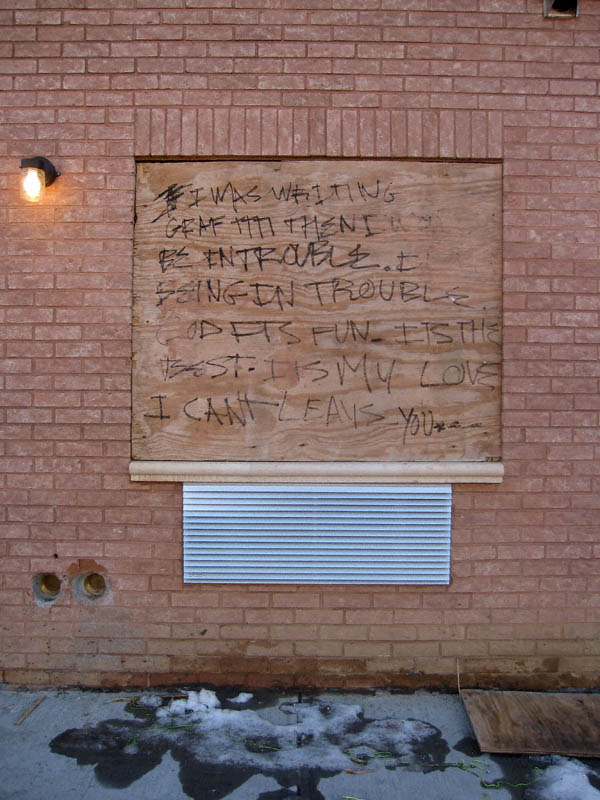 I WAS WRITING
GRAFITTI THEN I
BE IN TROUBLE. I
BEING IN TROUBLE
GOD ITS FUN. IT'S THE
BEST. ITS MY LOVE
I CANT LEAVE YOU...